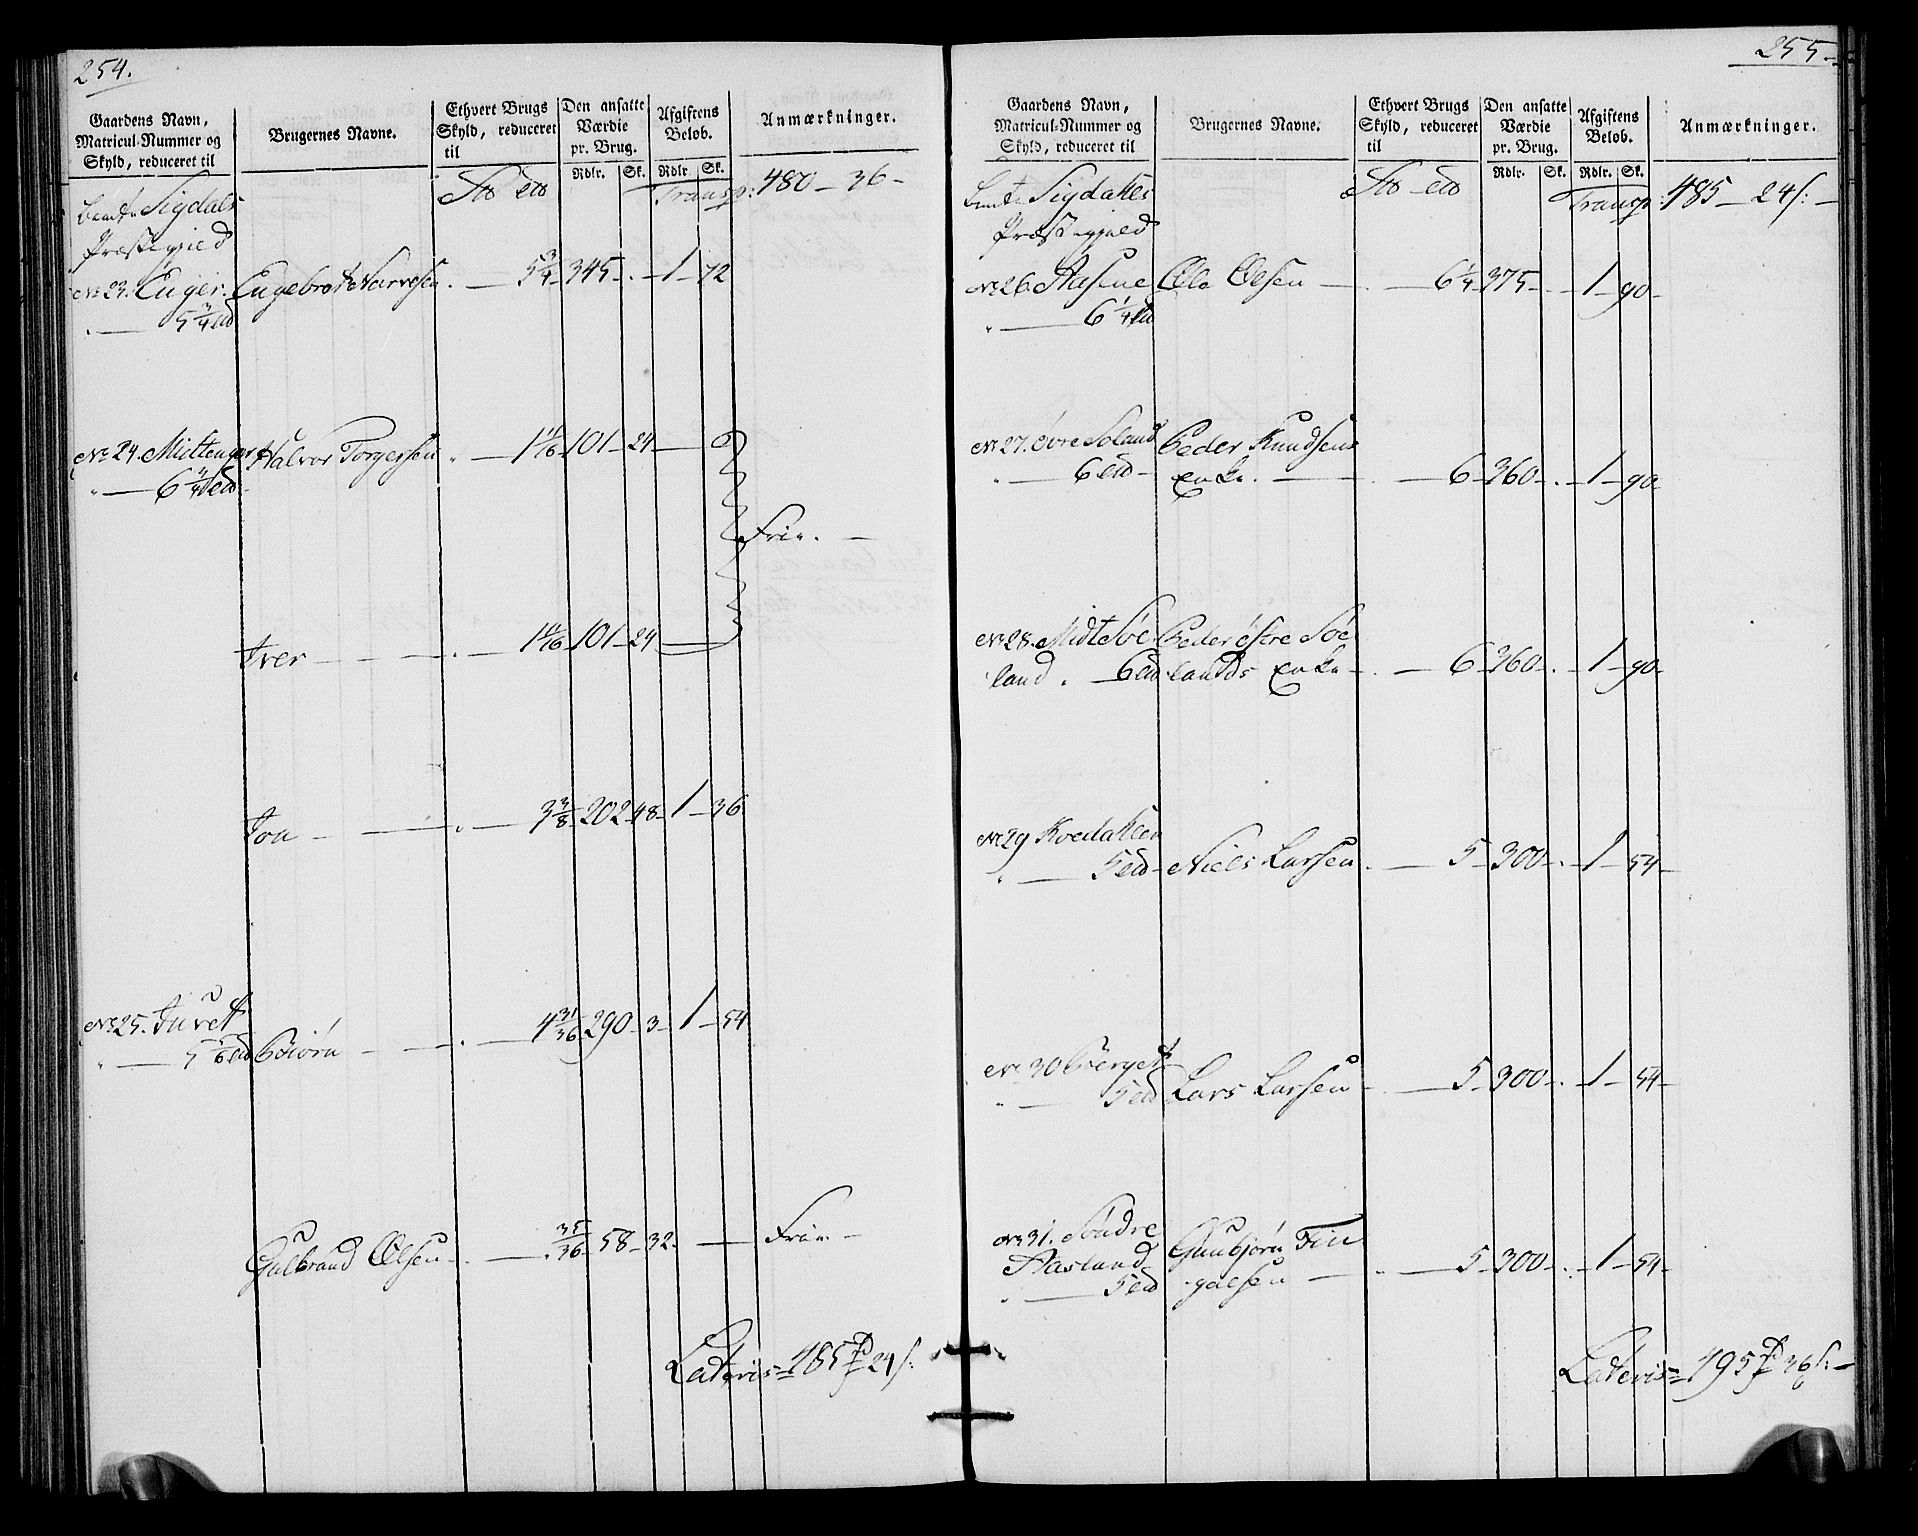 254.
Gaardens Navn, Matricul-Nummer og Skyld, reduceret til
Brugernes Navne.
Ethvert Brugs Skyld, reduceret til
Den ansatte Værdie pr. Brug.
Afgiftens Belob.
Anmærkninger.
Rdlr. Sk. Rdlr. Sk.
Transp: 480 - 36 -
Sigdals
Præstegield
No 23. Enger. Engebret Narvesen. - 5 3/4 - 345 - . - 1 - 72
" - 5 3/4
No 24. Mittenger Halvor Torgersen " - 1 11/16 - 101 - 24 -
" - 6 3/4
Frie. -
Iver - - - . - 1 11/16 - 101 - 24 -
Jon - - - " - 3 3/8 - 202 - 48 - 1 - 36
No 25. Juvet
" - 5 5/6 Biörn - - . - 4 31/36 - 290 - 3 - 1 - 54
Gulbrand Olsen - . - 35/36 - 58 - 32. - Frie. -
Lateris = 485 24 s:
255 -
Gaardens Navn, Matricul-Nummer og Skyld, reduceret til
Brugernes Navne.
Ethvert Brugs Skyld, reduceret til
Den ansatte Værdie pr. Brug.
Afgiftens Belob.
Anmærkninger.
Rdlr. Sk. Rdlr. Sk.
Transp: 485 - 24 s: -
Sigdals
Præstegjeld
No 26. Aasene Ole Olsen - . - 6 1/4 - 375 - . - 1 - 90 -
" - 6 1/4
No 27. Övre Soland Peder Knudsens
" - 6 - Enke. - - 6 - 360 - . - 1 - 90 -
No 28. Midt Söe Peder östre Söe
land . - 6 lands Enke - . - 6 - 360 - . - 1 - 90 -
No 29 Kvedalien
" - 5 - Niels Larsen . - 5 - 300 - . - 1 - 54 -
No 30 Berget
" - 5 Lars Larsen - . - 5 - 300 - . - 1 - 54 -
No 31. Söndre
Aasland Gunbjörn Fin
" - 5 galsen - " - 5 - 300 - . - 1 - 54 -
Lateris = 495 36 s: -